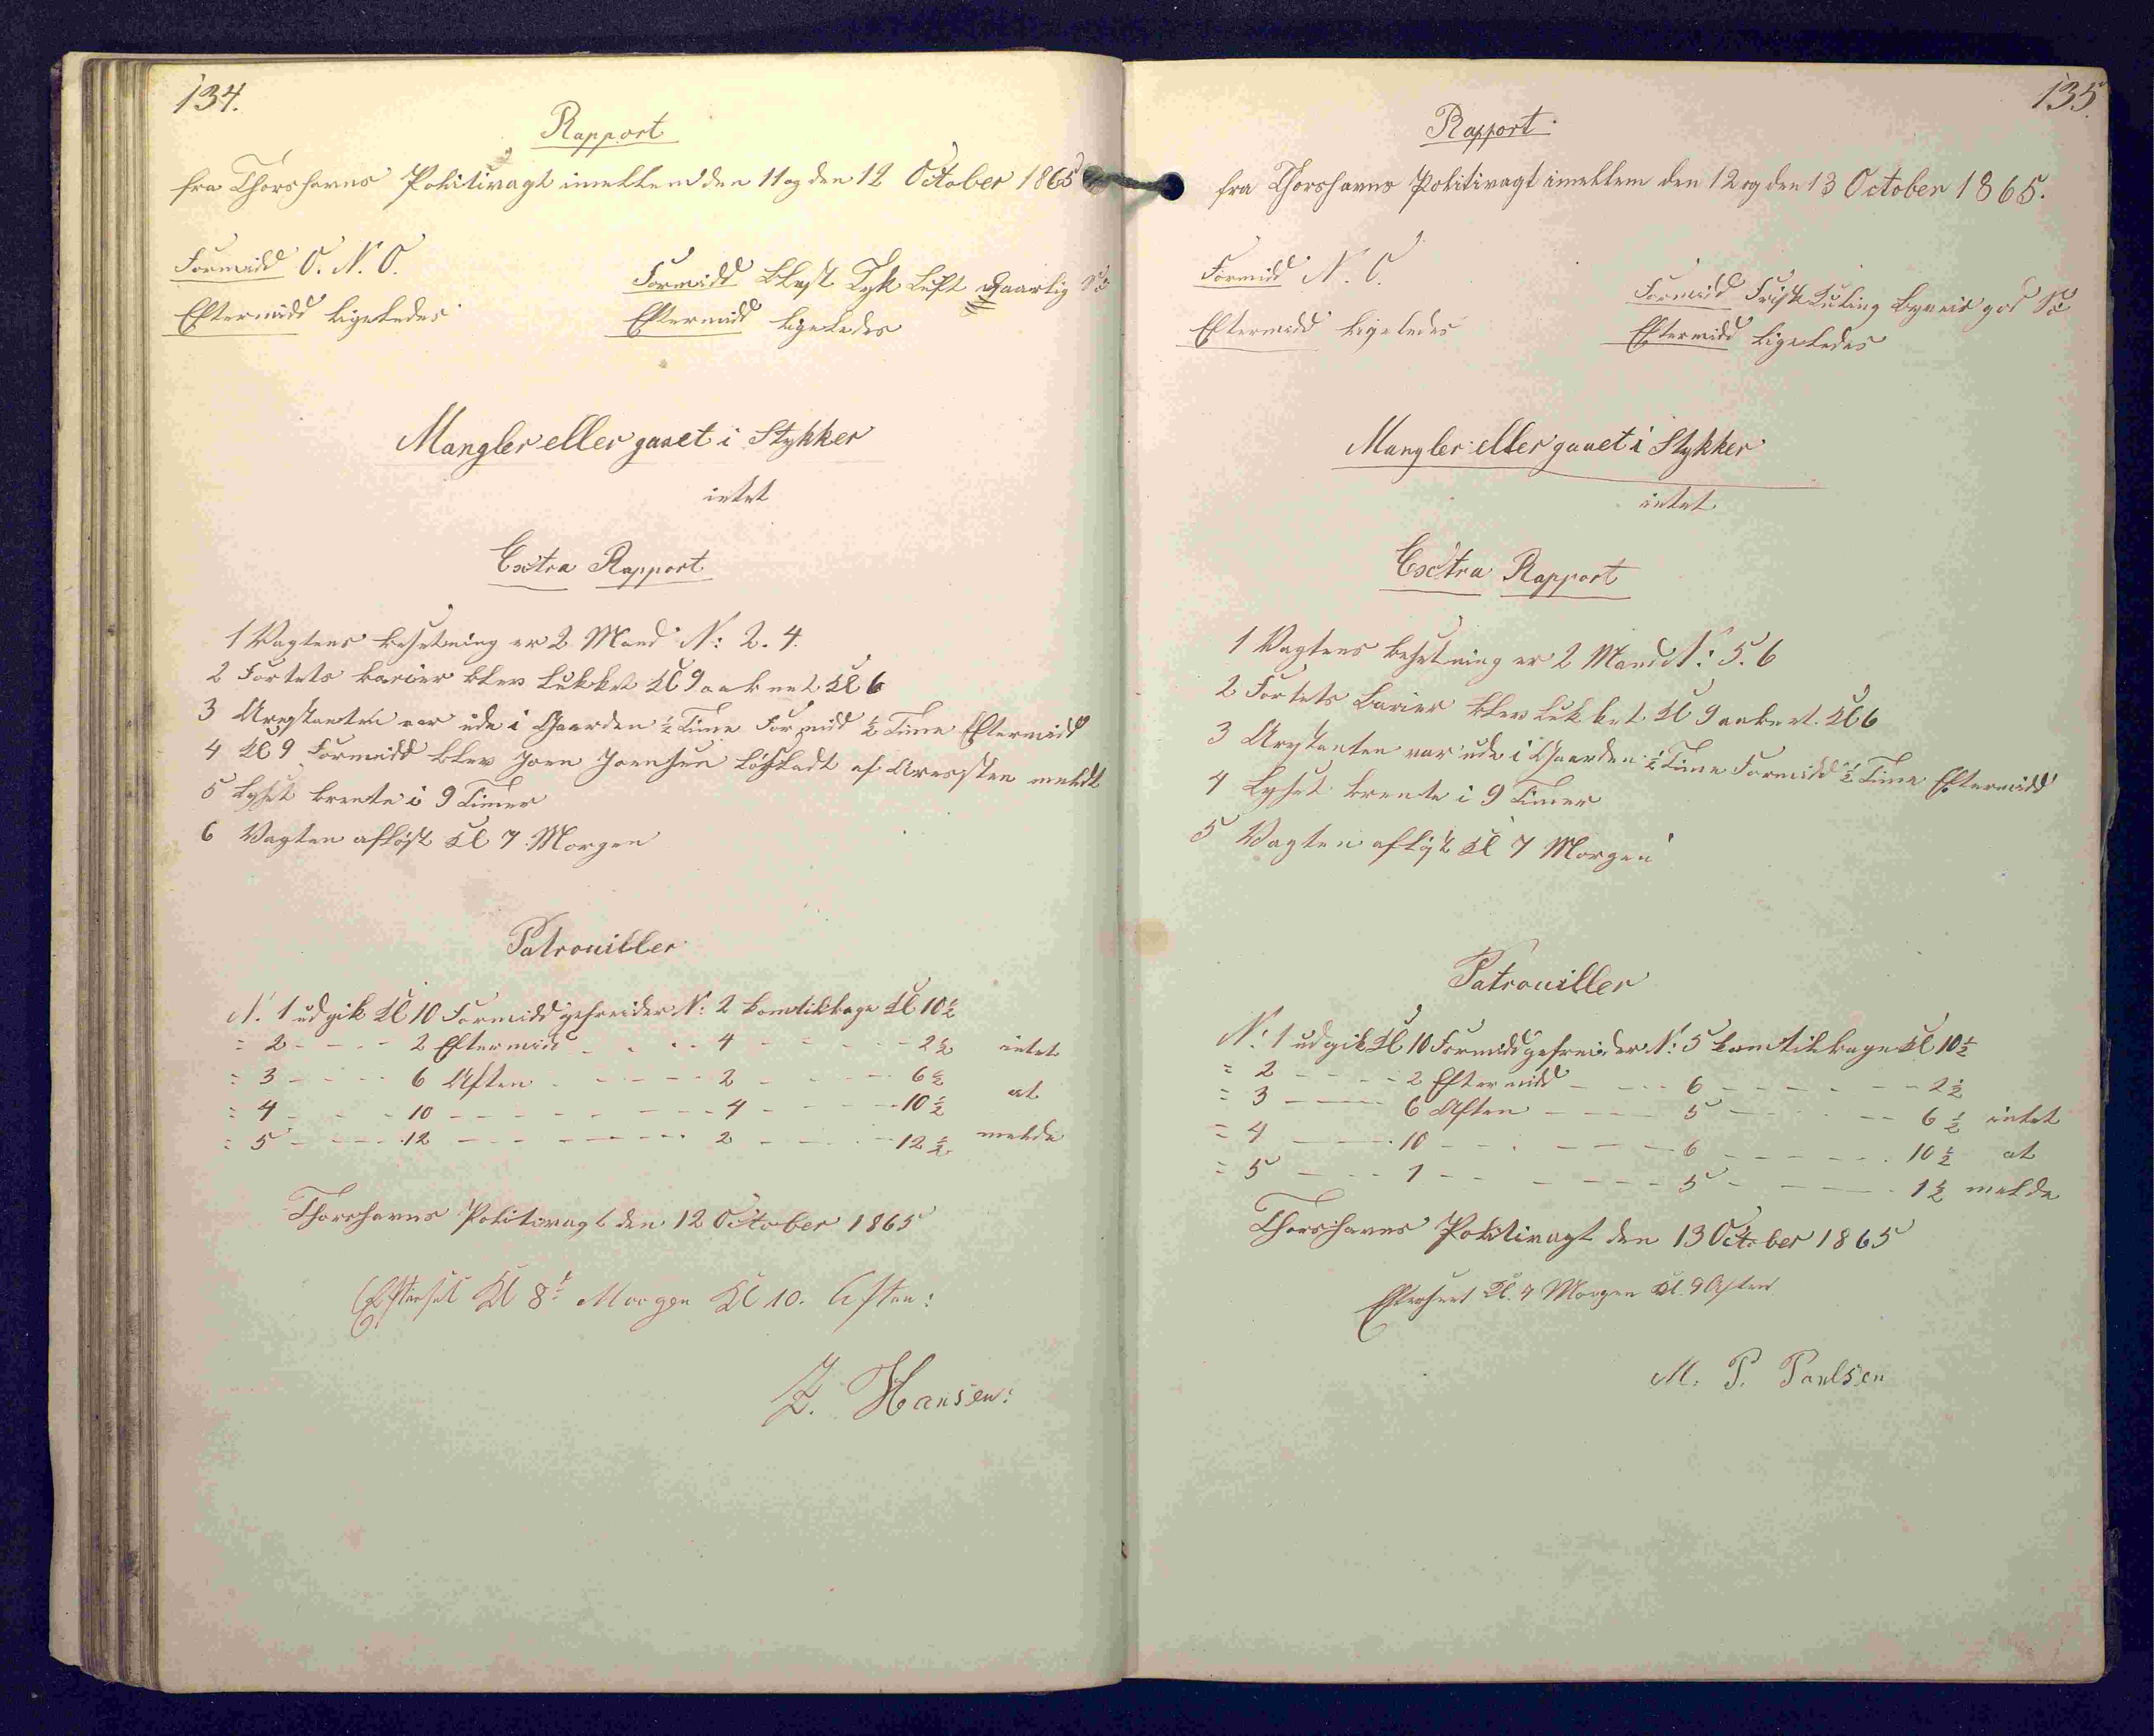 134.
Rapport
fra Thorshavns Politivagt imellem den 11 og den 12 October 1865
Formidd O. N. O.
Eftermidd ligeledes
Formidd Blæst Tyk Luft daarlig Sö
Eftermidd ligeledes
Mangler eller gaaet i Stykker
intet
Extra Rapport
1 Vagtens besetning er 2 Mand N: 2. 4.
2 Fortets barier blev lukket Kl 9 aaknet Kl 6
3 Arestanten var ude i Gaarden ½ Time Formidd ½ Time Eftermidd
4 Kl 9 Formidd blev Joen Joensen lösladt af Arresten meldt
5 Lyset brente i 9 Timer
6 Vagten aflöst Kl 7 Morgen
Patrouiller
N. 1 udgik Kl 10 Formidd gefreider N: 2 komtilbage Kl 10½
= 2 - - - - 2 Eftermidd - - - - 4 - - - - - 2½ intet
= 3 - - - - 6 Aften - - - - - 2 - - - - - 6½ at
= 4 - - - - 10 - - - - - - - - 4 - - - - - 10½
= 5 - - - - 12 - - - - - - - - 2 - - - - - 12½ melde
Thorshavns Politivagt den 12 October 1865
Efterset Kl 8½ Morgen Kl 10. Aften:
Z. Hansen:
135.
Rapport
fra Thorshavns Politivagt imellem den 12 og den 13 October 1865.
Formidd N. O.
Eftermidd ligeledes
Formidd Frisk Kuling Byevis god Sö
Eftermidd ligeledes
Mangler eller gaaet i Stykker
intet
Extra Rapport
1 Vagtens besetning er 2 Mand N: 5. 6
2 Fortets Barier blev lukket Kl 9 aaknet Kl 6
3 Arestanten var ude i Gaarden ½ Time Formidd ½ Time Eftermidd
4 Lyset brente i 9 Timer
5 Vagten aflöst Kl 7 Morgen
Patrouiller
N: 1 udgik Kl 10 Formidd gefreider N: 5 komtilbage Kl 10½
= 2 - - - - 2 Eftermidd - - - - 6 - - - - - - 2½
= 3 - - - - 6 Aften - - - - 5 - - - - - - 6½ intet
= 4 - - - - 10 - - - - - - - 6 - - - - - - 10½ at
= 5 - - - - 1 - - - - - - - 5 - - - - - - 1½ melde
Thorshavns Politivagt den 13 October 1865
Efterseet Kl. 7 Morgen Kl. 9 Aften
M. P. Paulsen